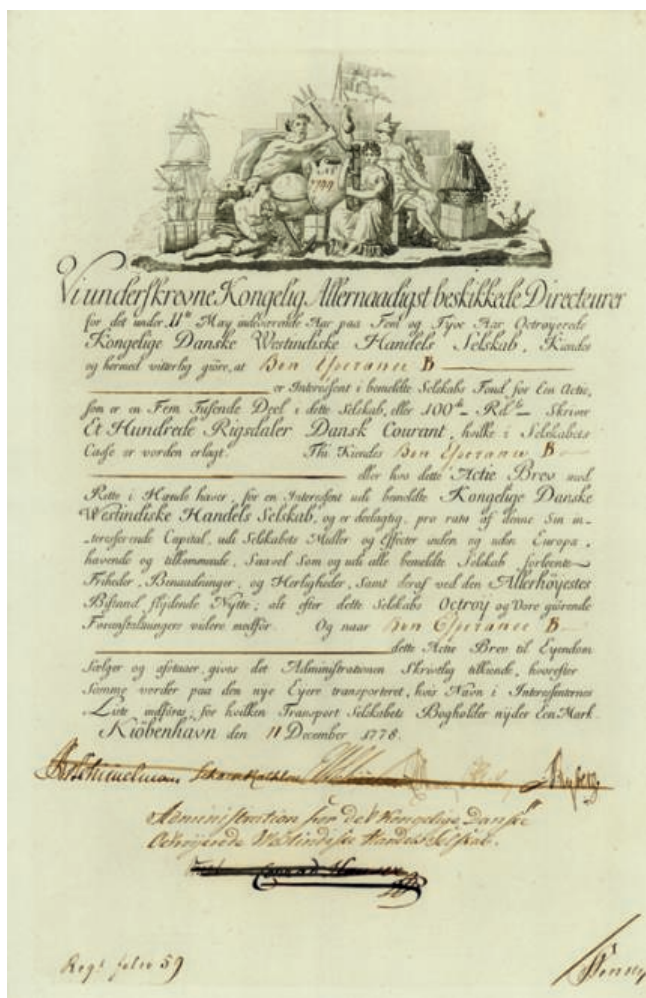 Vi underskrevne Kongelig Allernaadigst beskikkede Directeurer
for det under 11te May indeværende Aar paa Fem og Tyve Aar Octroyerede
Kongelige Danske Westindiske Handels Selskab, Kiendes
og hermed vitterlig giøre, at Bon Esperance B
er Interessent i bemeldte Selskabs Fond for Een Actie,
som er en Fem Tusende Deel i dette Selskab, eller 100de Rdle Skriver
Et Hundrede Rigsdaler Dansk Courant, hvilke i Selskabets
Casse er vorden erlagt. Thi Kiendes Bon Esperance B
eller hvo dette Actie Brev med
Rette i Hænde haver, for en Interessent udi bemeldte Kongelige Danske
Westindiske Handels Selskab, og er deelagtig, pro rata af denne Sin in-
teresserende Capital, udi Selskabets Midler og Effecter inden og uden Europa,
havende og tilkommende, Saavel Som og udi alle bemeldte Selskab forleente
Friheder, Benaadninger, og Herligheder, Samt deraf ved den Allerhöyestes
Bistand flydende Nytte; alt efter dette Selskabs Octroy og Vore giörende
Foranstaltningers videre medför. Og naar Bon Esperance B
dette Actie Brev til Eyendom
Sælger og afstaaer, gives det Administrationen Skriftlig tilkiende, hvorefter
Samme vorder paa den nye Eyere transporteret, hvis Navn i Interessenternes
Liste indföres; for hvilken Transport Selskabets Bogholder nyder Een Mark.
Kiöbenhavn den 11 December 1778.
Schimmelmann Ryberg
Administration for det Kongelige Danske
Octroyerede Westindiske Handels Selskab.
Regt folio 59